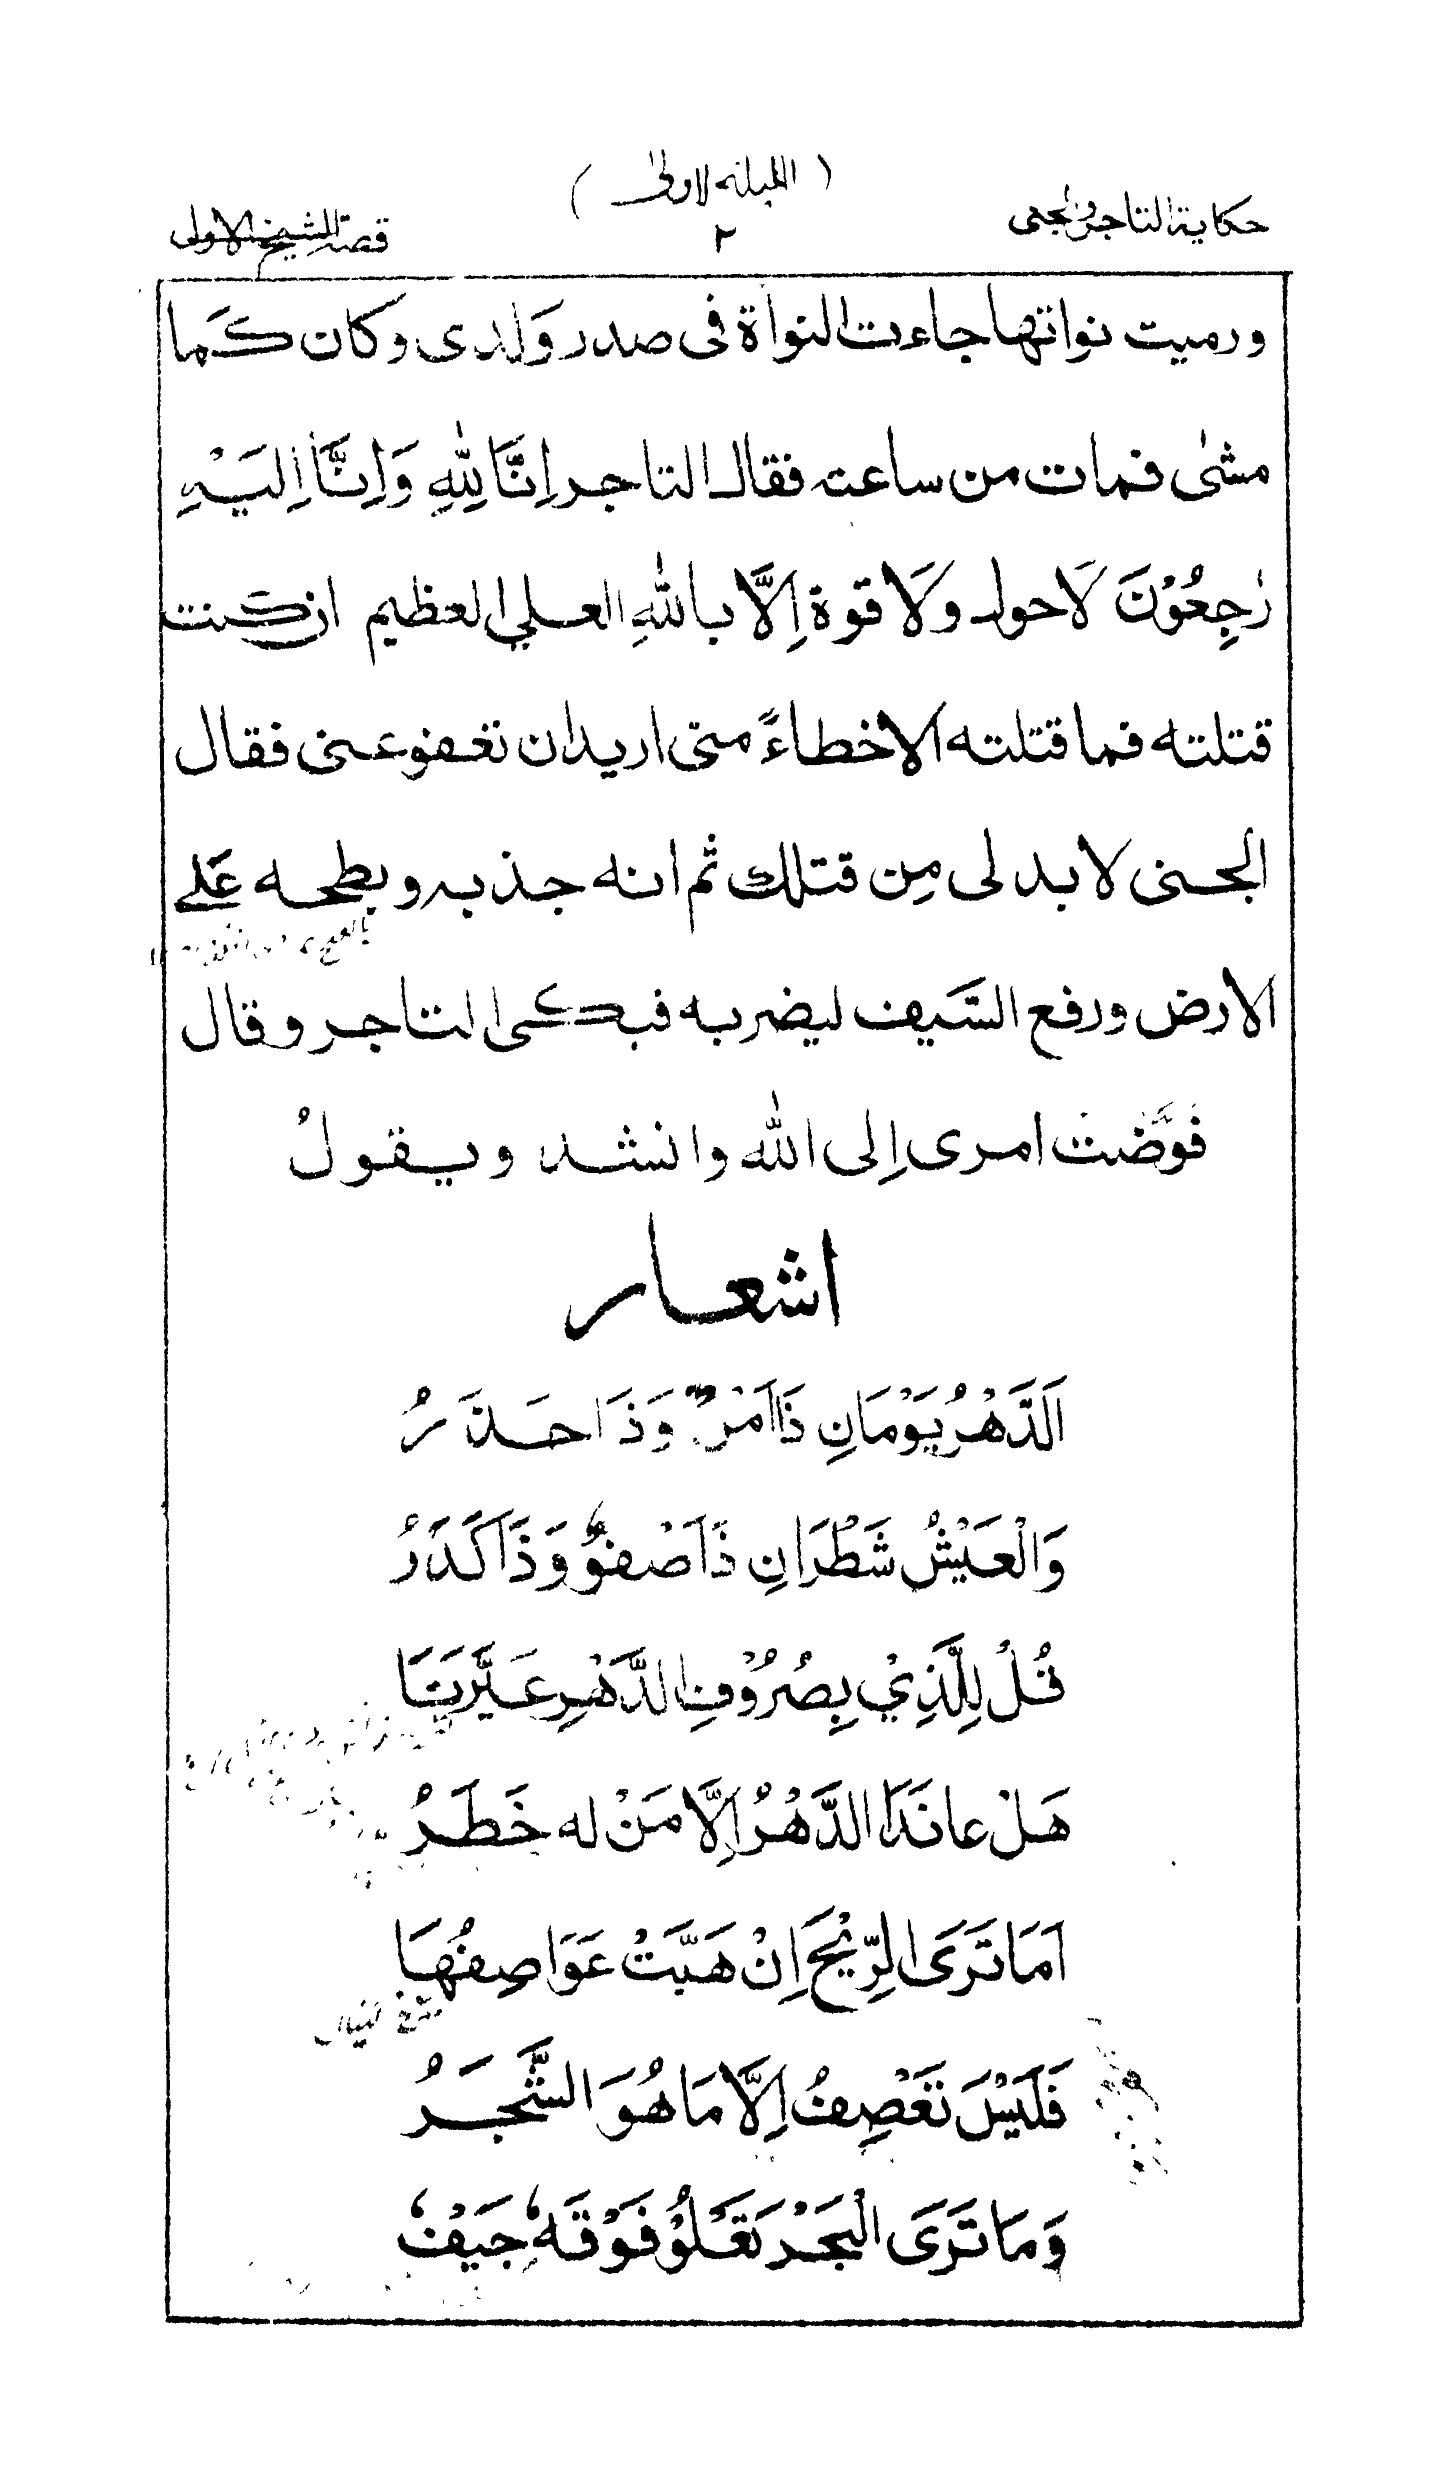 حكاية التاجر والجنى
(الليلة الاولىٰ)
قصة الشيخ الاولى
٢
ورميت نواتها جاءت النواة فى صدر وَلدى وكان كَما
مشىٰ فمات من ساعته فقال التاجر اِنَّا لِلّٰهِ وَاِنَّا اِليَهْ
رٰجِعُوْنَ لَاحول ولَا قوة اِلَّا باللّٰهِ العلي العظيم ان كنت
قتلته فما قتلته الاخطاءً منى اريدان تعفوعنى فقال
الجنى لابد لى مِن قتلك ثم انه جذبه وبطحه عَلے
الارض ورفع السَّيف ليضربه فبكى التاجر وقال
فوَّضت امرى اِلى الله وانشد ويقولُ
اشعار
اَلدَّهْرُ يَوْمَانِ ذَا اَمْنٌ وَذَا حَذَرُ
وَالْعَيْشُ شَطْرَانِ ذَا صْفوٌ وَذَا كَدَرُ
قُلْ لِلَّذِيْ بِصُرُوْفِ الدَّهْرِ عَيَّرَنَا
هَلْ عانَدَ الدَّهْرُ اِلَّا مَنْ له خَطَرُ
اَمَا تَرَى الرِّيْحَ اِنْ هَبَّتْ عَوَاصِفُهَا
فَلَيْسَ تَعْصِفُ اِلَّا مَا هُوَ الشَّجَرُ
وَمَا تَرَى الْبَحْرَ تَعْلُوْ فَوْقَهُ جِيَفٌ